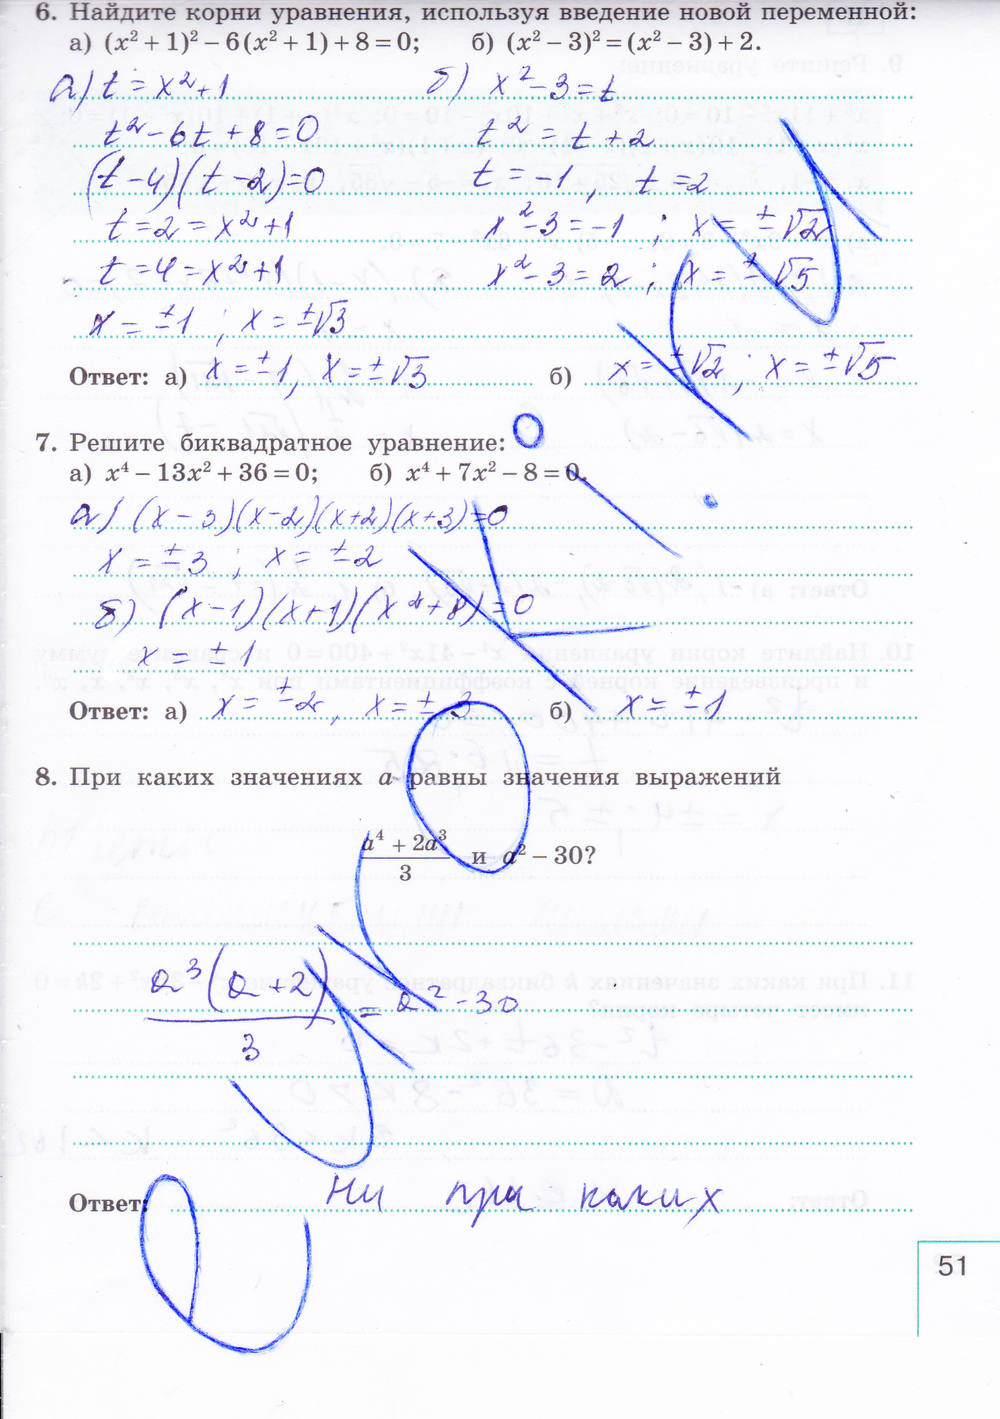 6. Найдите корни уравнения, используя введение новой переменной:
а) (x² + 1)² − 6(x² + 1) + 8 = 0; б) (x² − 3)² = (x² − 3) + 2.
а) t = x² + 1 б) x² − 3 = t
t² − 6t + 8 = 0 t² = t + 2
(t − 4)(t − 2) = 0 t = −1, t = 2
t = 2 = x² + 1 x² − 3 = −1 ; x = ±√2
t = 4 = x² + 1 x² − 3 = 2 ; x = ±√5
x = ±1 ; x = ±√3
Ответ: а) x = ±1, x = ±√3 б) x = ±√2 ; x = ±√5
7. Решите биквадратное уравнение:
а) x⁴ − 13x² + 36 = 0; б) x⁴ + 7x² − 8 = 0.
а) (x − 3)(x − 2)(x + 2)(x + 3) = 0
x = ±3 ; x = ±2
б) (x − 1)(x + 1)(x² + 8) = 0
x = ±1
Ответ: а) x = ±2, x = ±3 б) x = ±1
8. При каких значениях a равны значения выражений
(a⁴ + 2a³)/3 и a² − 30?
a³(a + 2)/3 = a² − 30
Ответ: ни при каких
51